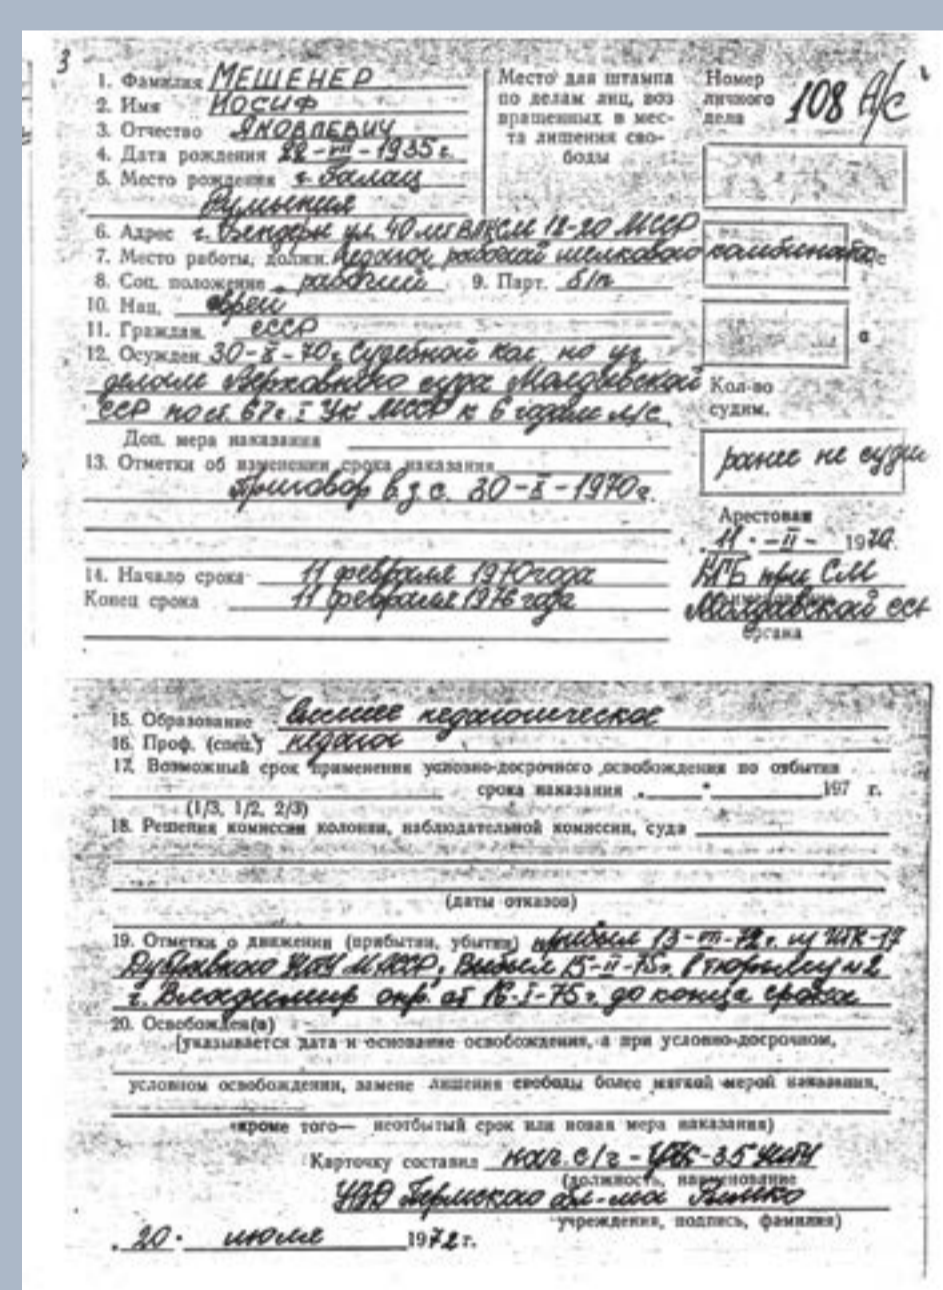 3
1. Фамилия МЕШЕНЕР
2. Имя ИОСИФ
3. Отчество ЯКОВЛЕВИЧ
4. Дата рождения 22-VII-1935г.
5. Место рождения г. Галац
Румыния
Место для штампа
по делам лиц, воз
вращенных в мес-
та лишения сво-
боды
Номер
личного
дела
108 А/С
6. Адрес г. Бендеры ул. 40 лет ВЛКСМ 18-20 МССР
7. Место работы, должн. Педагог рабочий шелкового комбината
8. Соц. положение рабочий 9. Парт. б/п
10. Нац. еврей
11. Граждан. СССР
12. Осужден 30-X-70г. Судебной кол. по уг.
делам Верховного суда Молдавской
ССР по ст. 67 ч. I УК МССР к 6 годам л/с
Доп. мера наказания
13. Отметки об изменении срока наказания
Приговор в з.с. 30-X-1970г.
14. Начало срока 11 февраля 1970 года
Конец срока 11 февраля 1976 года
Кол-во
судим.
ранее не судим
Арестован
11 -II- 1970.
КГБ при СМ
Молдавской ССР
органа
15. Образование высшее педагогическое
16. Проф. (спец.) педагог
17. Возможный срок применения условно-досрочного освобождения по отбытии
срока наказания „ " 197 г.
(1/3, 1/2, 2/3)
18. Решения комиссии колонии, наблюдательной комиссии, суда
(даты отказов)
19. Отметки о движении (прибытии, убытии) прибыл 13-VII-72г. из ИТК-17
Дубравного ИТУ МАССР. Выбыл 15-II-75г. в тюрьму №2
г. Владимир опр. от 16-I-75г. до конца срока
20. Освобожден(а)
(указывается дата и основание освобождения, а при условно-досрочном,
условном освобождении, замене лишения свободы более мягкой мерой наказания,
кроме того— неотбытый срок или новая мера наказания)
Карточку составил нач. с/ч - ИТК-35 УИТУ
(должность, наименование
УВД Пермского обл-ма
учреждения, подпись, фамилия)
20. июля 1972 г.